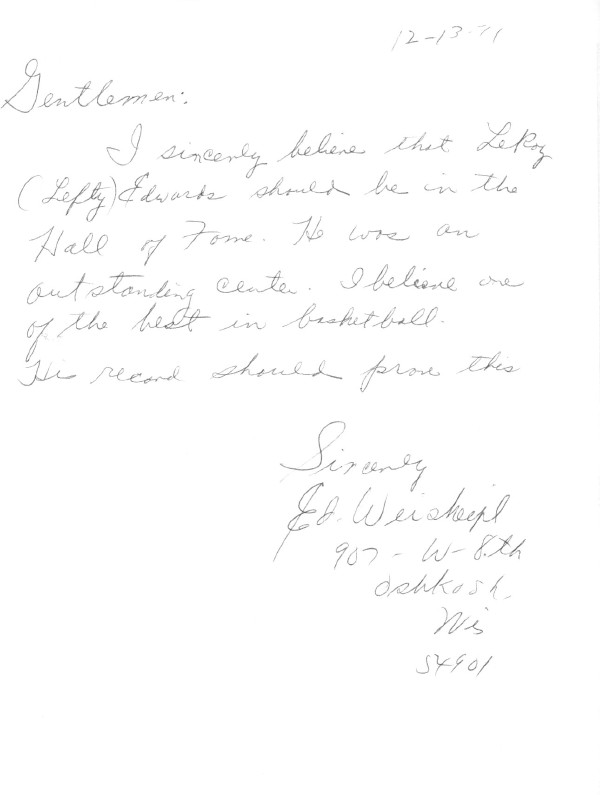 12-13-71
Gentlemen:
I sincerly believe that LeRoy
(Lefty) Edwards should be in the
Hall of Fame. He was an
outstanding center. I believe one
of the best in basketball.
His record should prove this
Sincerly
Ed. Weiskeipl
907 - W - 8.th
Oshkosh.
Wis
54901